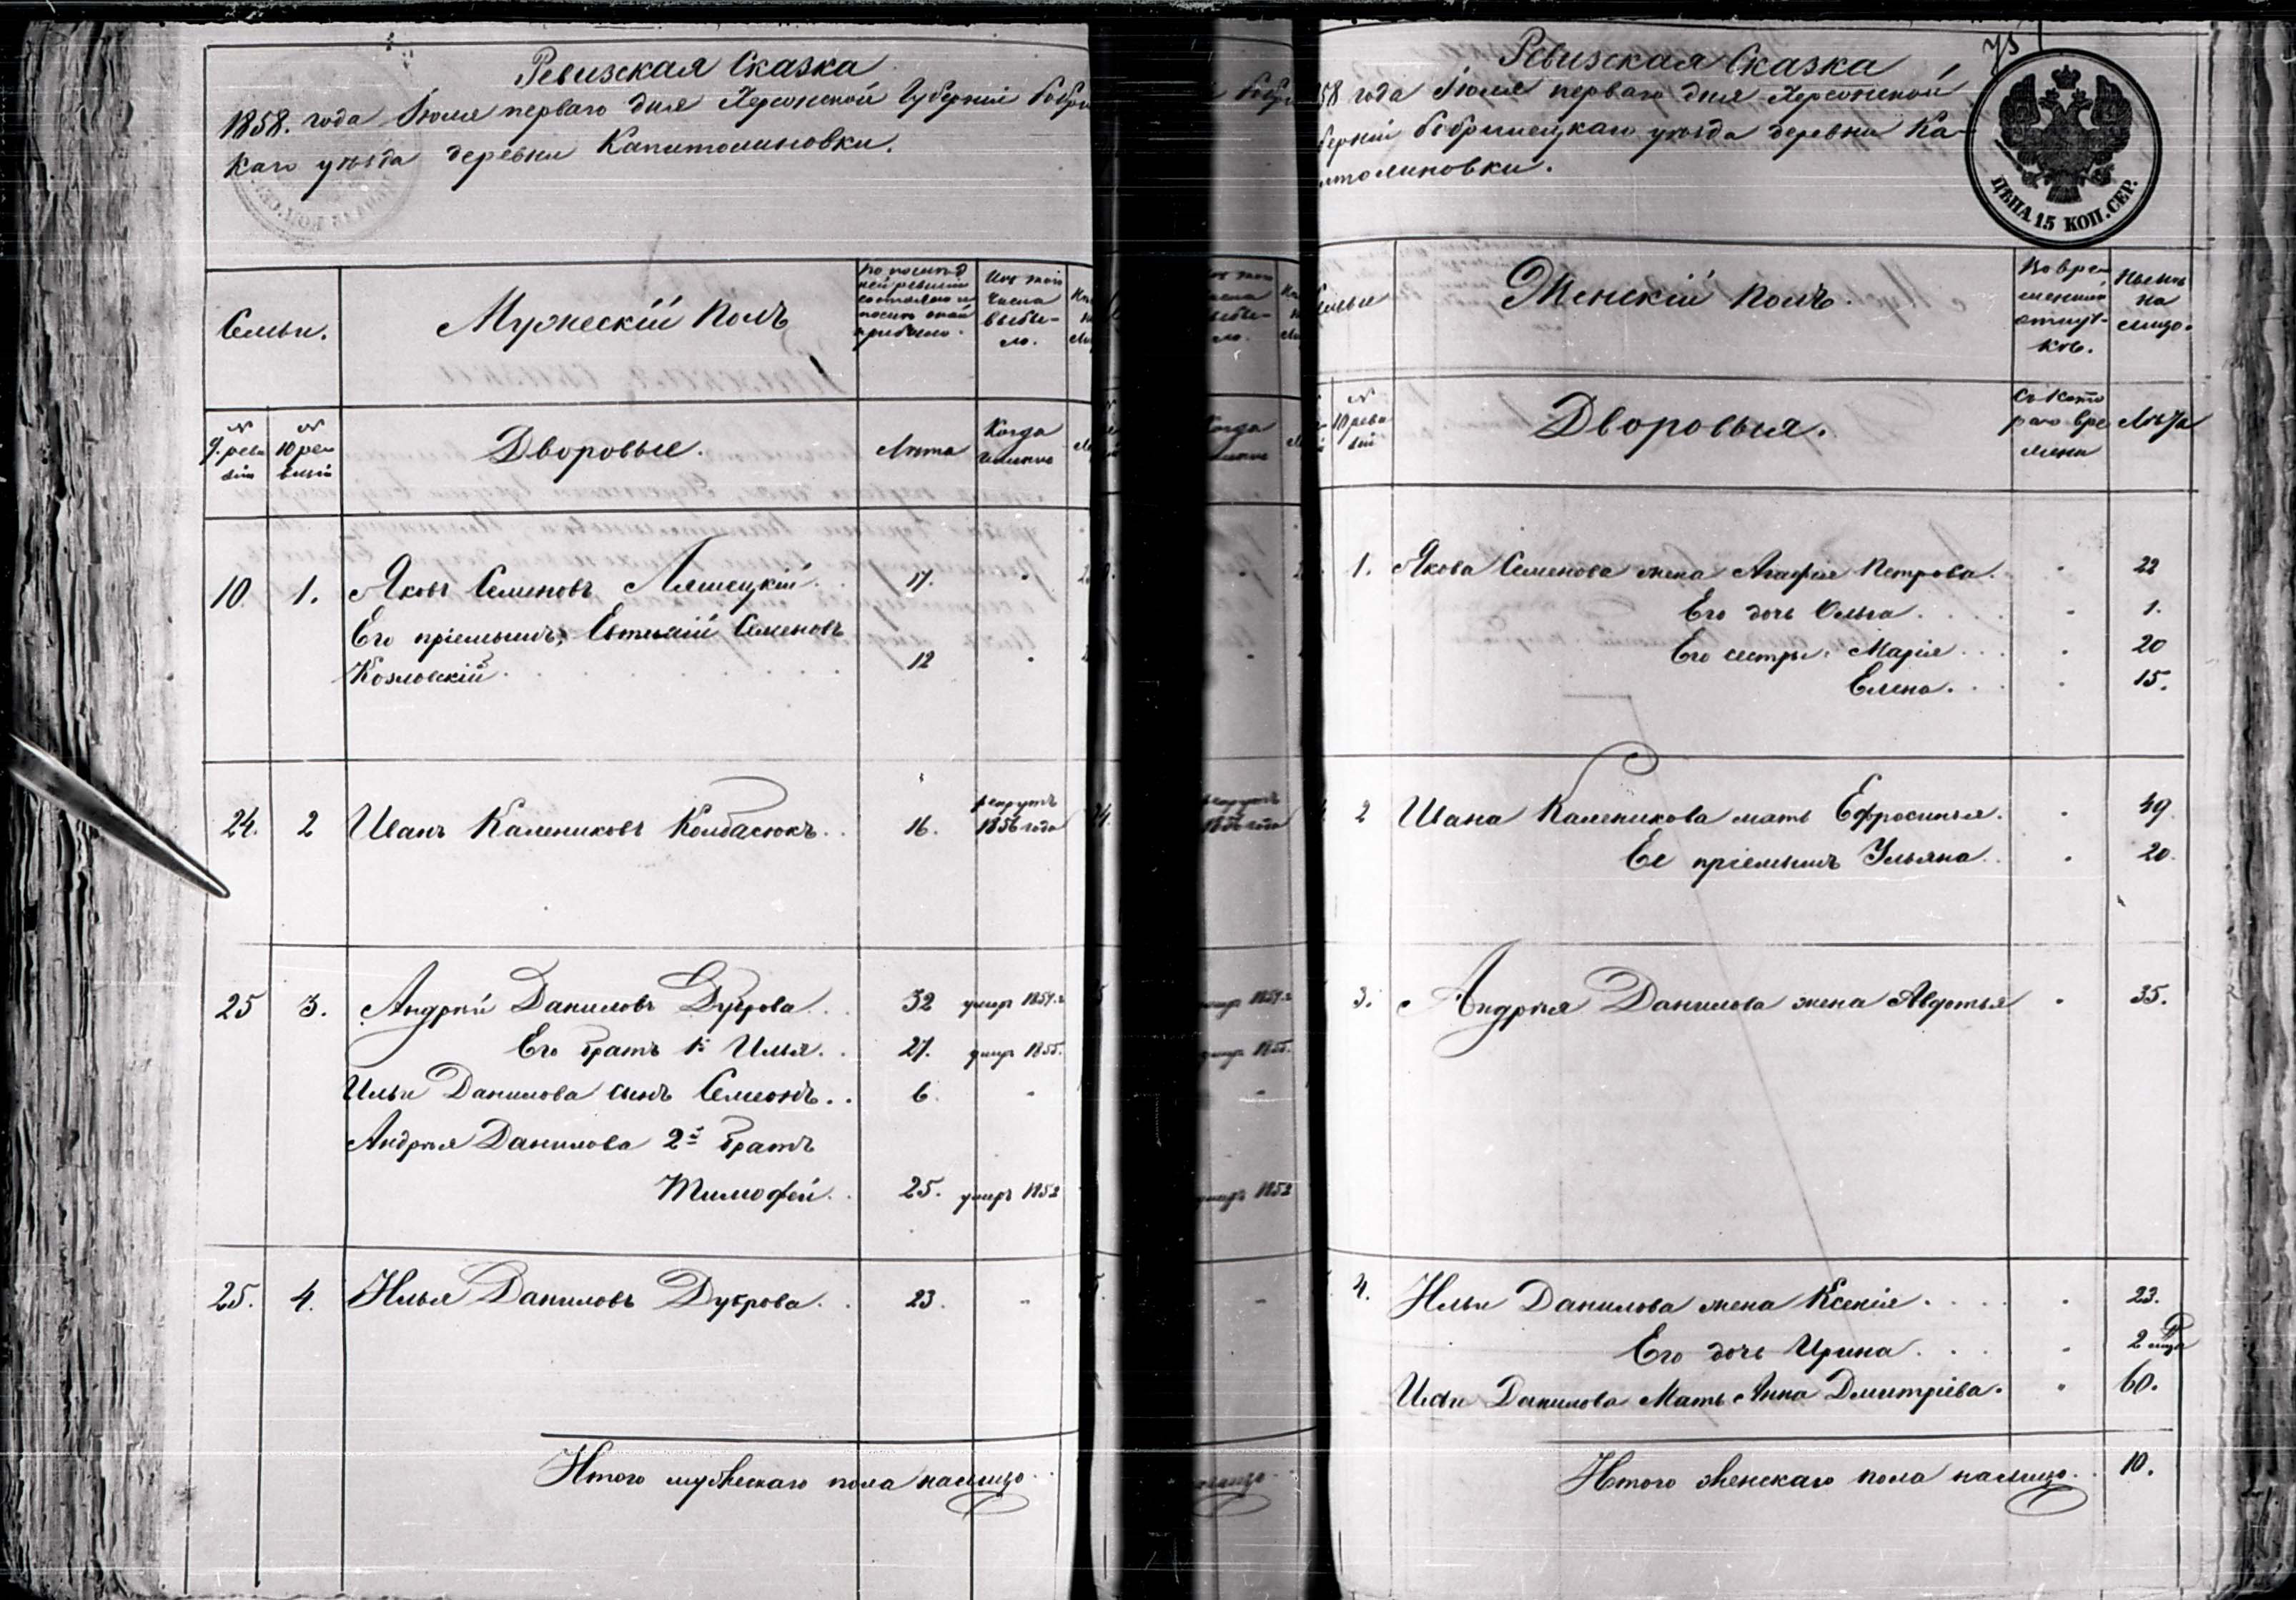 Ревизская Сказка
1858. года Июля перваго дня Херсонской Губерніи Бобри
каго уѣзда деревни Капитолиновки.
Семьи.
Мужескій полъ
по послѣд
ней ревизіи
состояло и
послѣ оной
прибыло.
Изъ того
числа
выбы-
ло.
№
9. реви
зіи
№
10 ре
визіи
Дворовые.
Лѣта
Когда
именно
10. 1. Яковъ Семеновъ Ляшецкій. 17.
Его пріемышъ, Евтихій Семеновъ
Козловскій. 12
24. 2 Иванъ Калениковъ Колбасюкъ. 16. рекрутъ
1856 года
25 3. Андрѣй Даниловъ Дуброва. 32 умеръ 1854.
Его братъ 1й Илья. 27. умеръ 1855.
Ильи Данилова сынъ Семіонъ. 6.
Андрѣя Данилова 2й братъ
Тимофей. 25. умеръ 1852
25. 4. Илья Даниловъ Дуброва. 23.
Итого мужескаго пола налицо.
75
Ревизская Сказка
58 года Июля перваго дня Херсонской
берніи Бобринецкаго уѣзда деревни Ка-
итолиновки.
ЦѢНА 15 КОП. СЕР.
Женскій полъ.
Во вре-
менной
отлуч-
кѣ.
Нынѣ
на
лицо.
№
10 реви
зіи
Дворовыя.
Съ кото
раго вре
мени
Лѣта
1. Якова Семенова жена Агафія Петрова. 22
Его дочь Ольга. 1.
Его сестры: Марія. 20
Елена. 15.
2 Ивана Каленикова мать Ефросинья. 49.
Ее пріемышъ Ульяна. 20.
3. Андрѣя Данилова жена Авдотья 35.
4. Ильи Данилова жена Ксенія. 23.
Его дочь Ирина. 2 мѣся
Ильи Данилова Мать Анна Дмитріева. 60.
Итого женскаго пола налицо. 10.